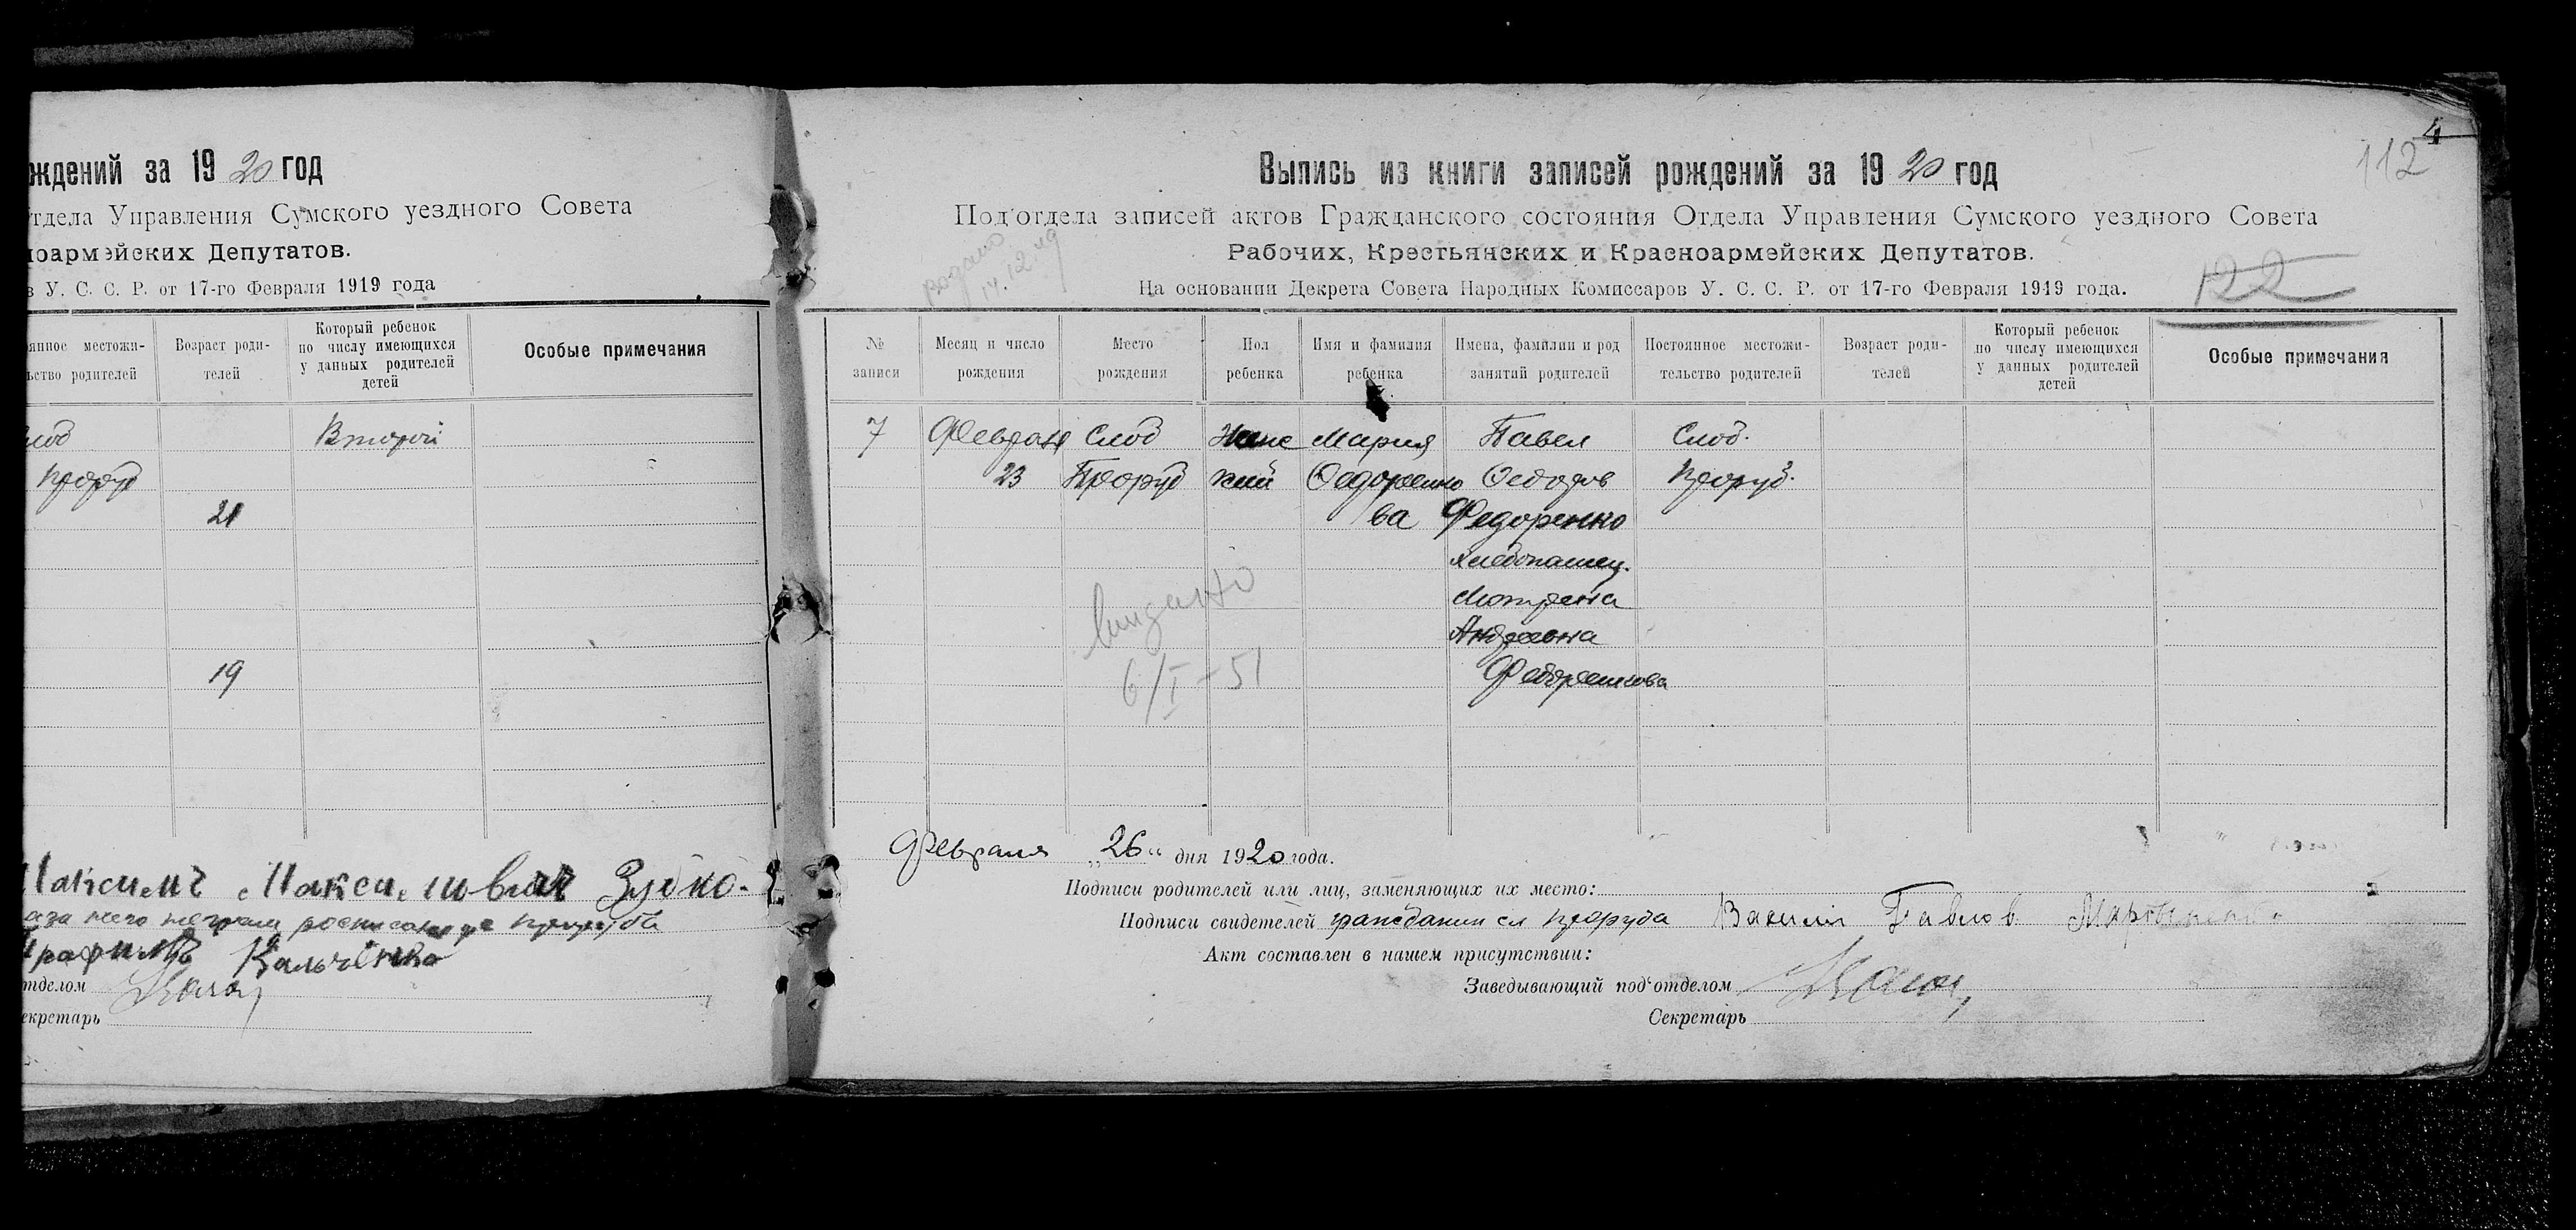 ждений за 1920 год
тдела Управления Сумского уездного Совета
ноармейских Депутатов.
в У. С. С. Р. от 17-го Февраля 1919 года
янное местожи-
ьство родителей
Возраст роди-
телей
Который ребенок
по числу имеющихся
у данных родителей
детей
Особые примечания
Второй
21
19
тделом
екретарь
4
112
122
Выпись из книги записей рождений за 1920 год
Под'отдела записей актов Гражданского состояния Отдела Управления Сумского уездного Совета
Рабочих, Крестьянских и Красноармейских Депутатов.
На основании Декрета Совета Народных Комиссаров У. С. С. Р. от 17-го Февраля 1919 года.
№
записи
Месяц и число
рождения
Место
рождения
Пол
ребенка
Имя и фамилия
ребенка
Имена, фамилии и род
занятий родителей
Постоянное местожи-
тельство родителей
Возраст роди-
телей
Который ребенок
по числу имеющихся
у данных родителей
детей
Особые примечания
7 Февраля Слоб Женс Мария Павел Слоб.
23 Проруб кий Федоренко Федоров Проруб.
ва Федоренко
хлебопашец.
Мотрена
Андреевна
Федоренкова
видано
6/I-51
Февраля „26“ дня 1920 года.
Подписи родителей или лиц, заменяющих их место:
Подписи свидетелей гражданин сл Проруба Василий Павлов
Акт составлен в нашем присутствии:
Заведывающий под'отделом
Секретарь